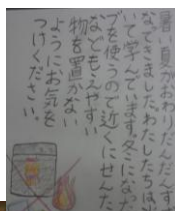 暑い夏がおわりだんだんすず
なってきました。わたしたちは
いて学んでいます。冬になった
ブを使うので近くにせんた
などもえやすい
物を置かない
ようにお気を
つけください。